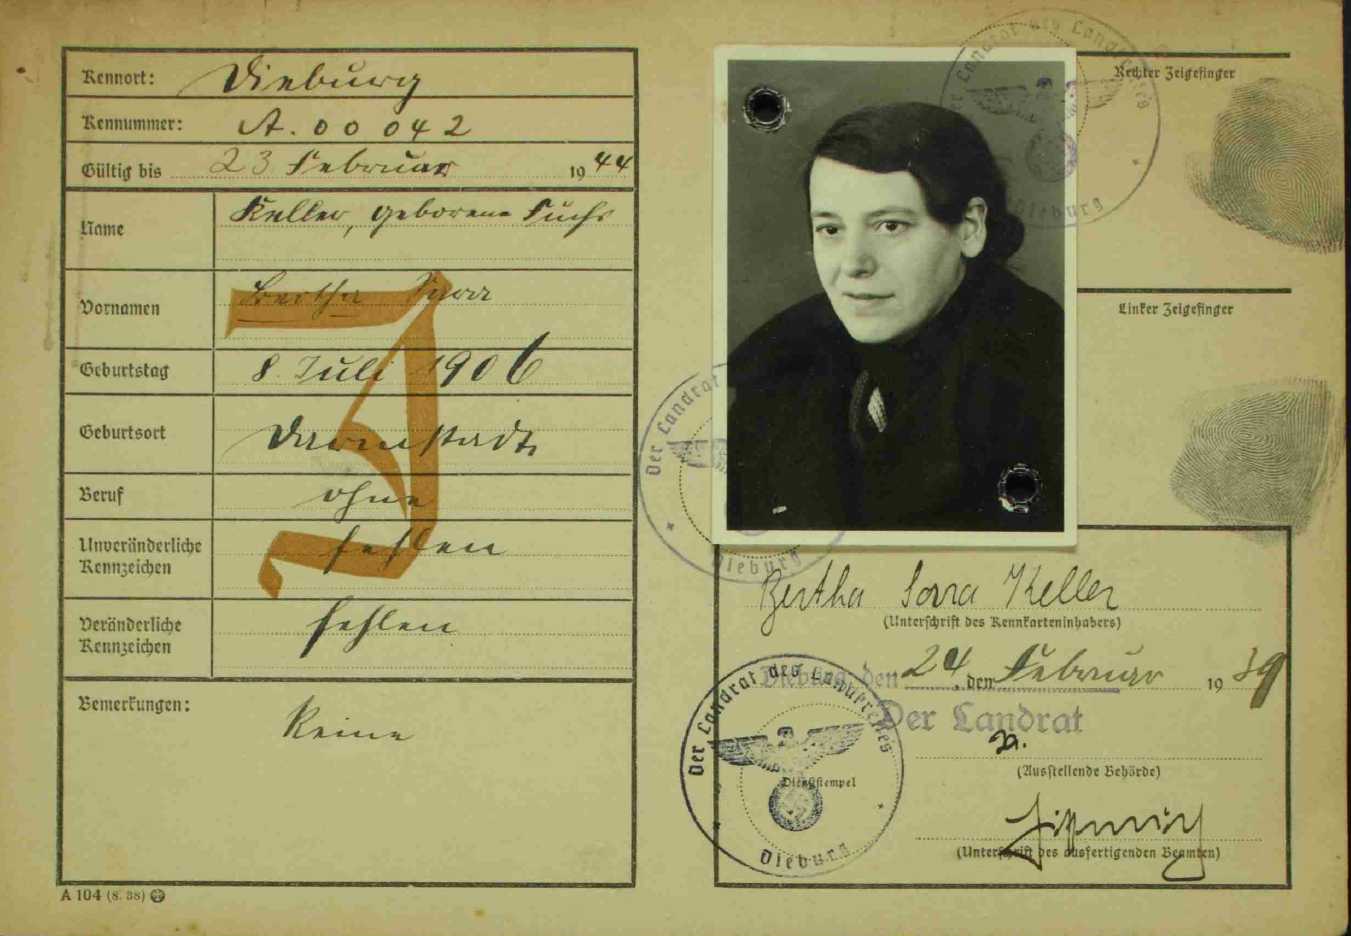 Kennort: Dieburg
Kennummer: A.00042
Gültig bis 23 Februar 1944
Name Keller, geborene Fuchs
Vornamen Bertha Sara
Geburtstag 8. Juli 1906
Geburtsort Darmstadt
Beruf ohne
Unveränderliche Kennzeichen fehlen
Veränderliche Kennzeichen fehlen
Bemerkungen:
Keine
J
A 104 (8. 38)
Der Landrat des Landkreises
Dieburg
Rechter Zeigefinger
Linker Zeigefinger
Der Landrat
Dieburg
Bertha Sara Keller
(Unterschrift des Kennkarteninhabers)
Dieburg, den 24. den Februar 1939
Der Landrat
(Ausstellende Behörde)
Der Landrat des Landkreises
Dienststempel
Dieburg
(Unterschrift des ausfertigenden Beamten)